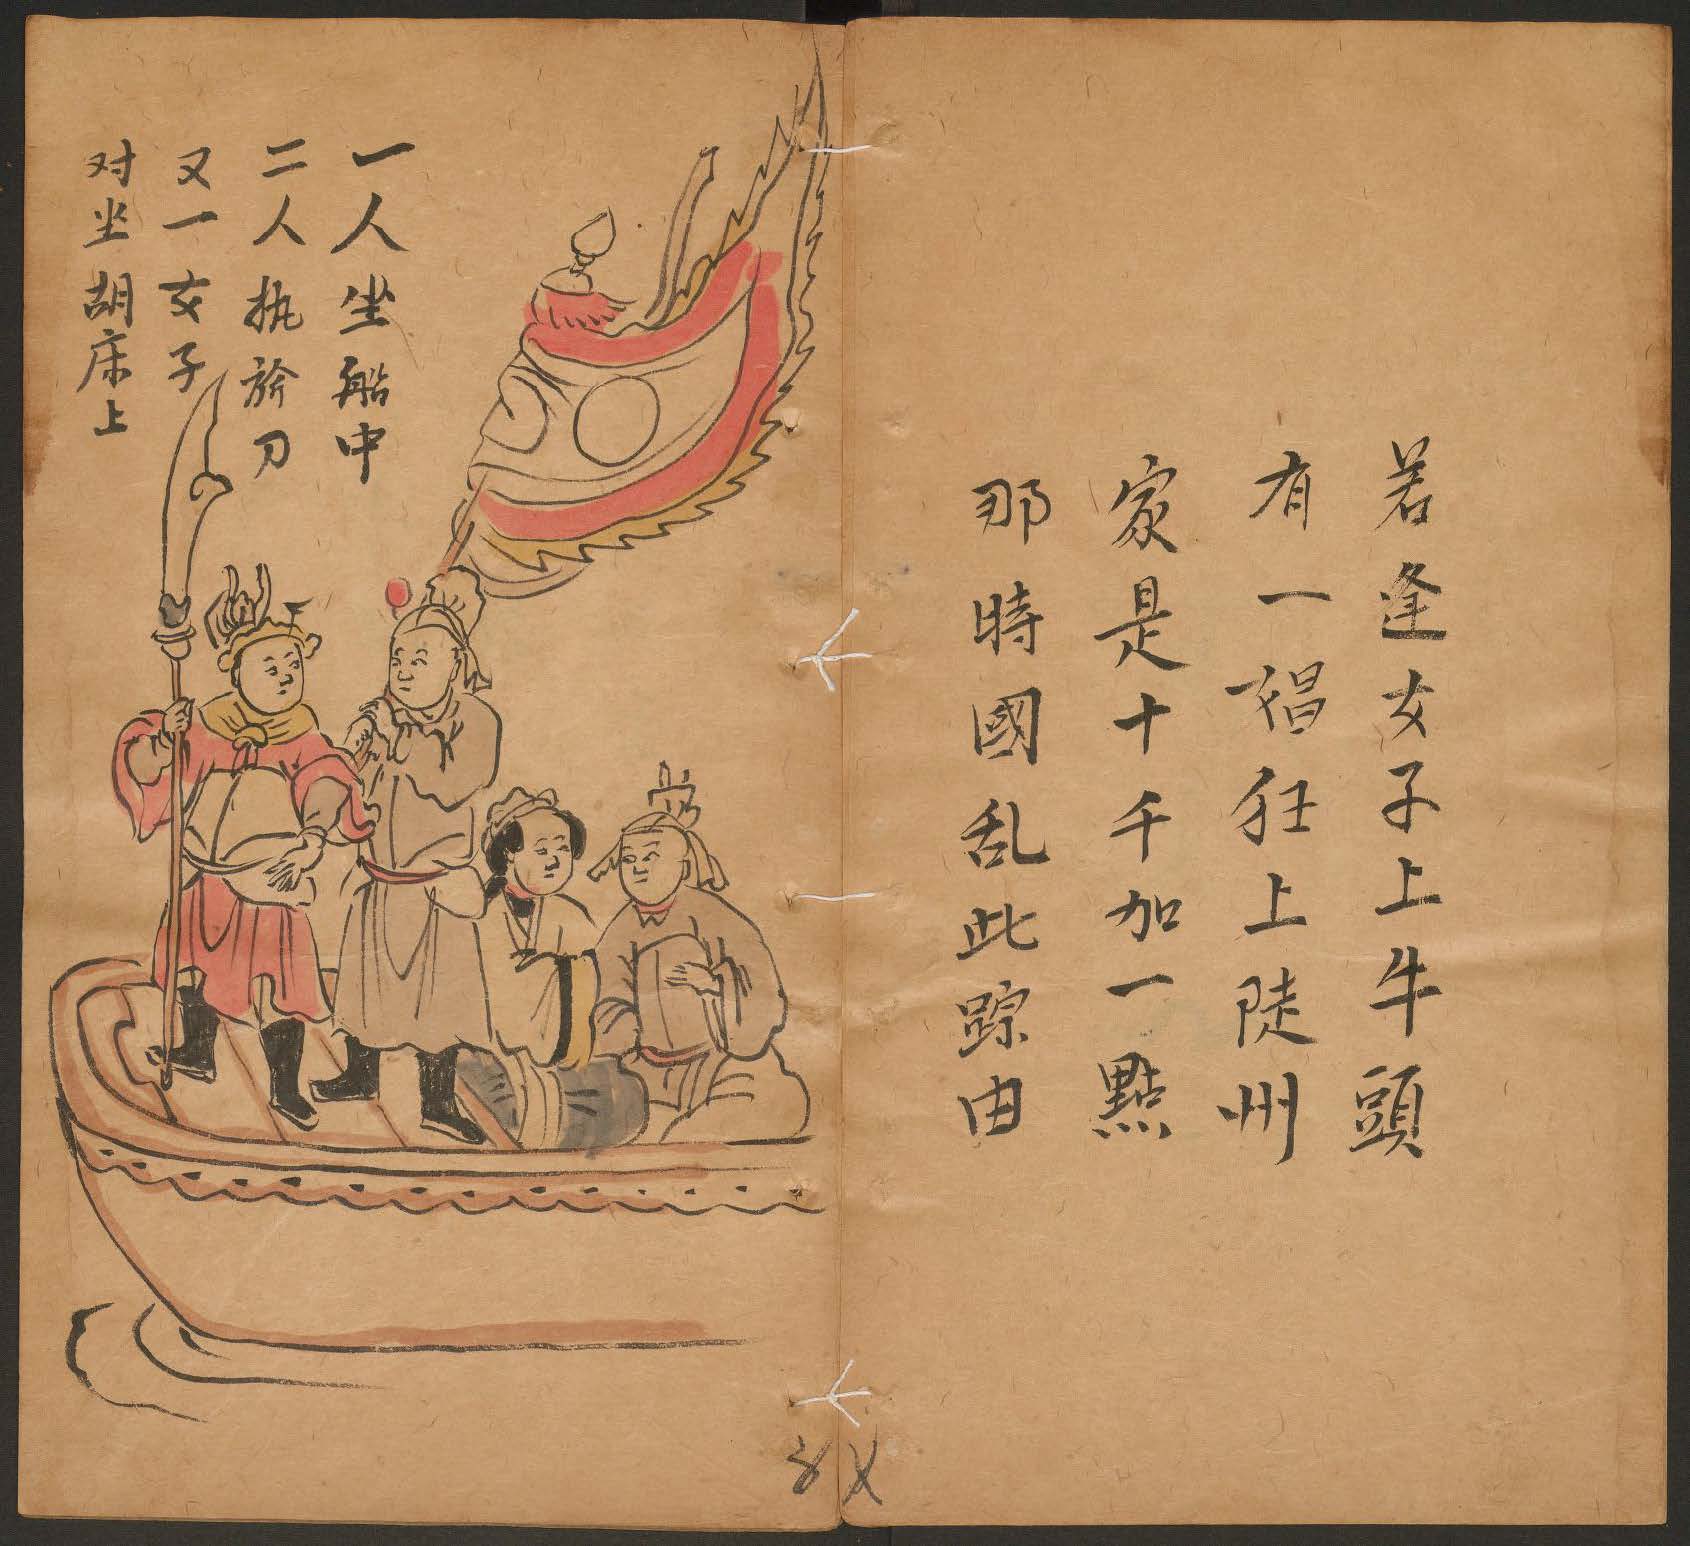 若逢女子上牛頭
有一娼狂上陡州
家是十千加一點
那時國乱此踪由
一人坐船中
二人执旂刀
又一女子
对坐胡床上